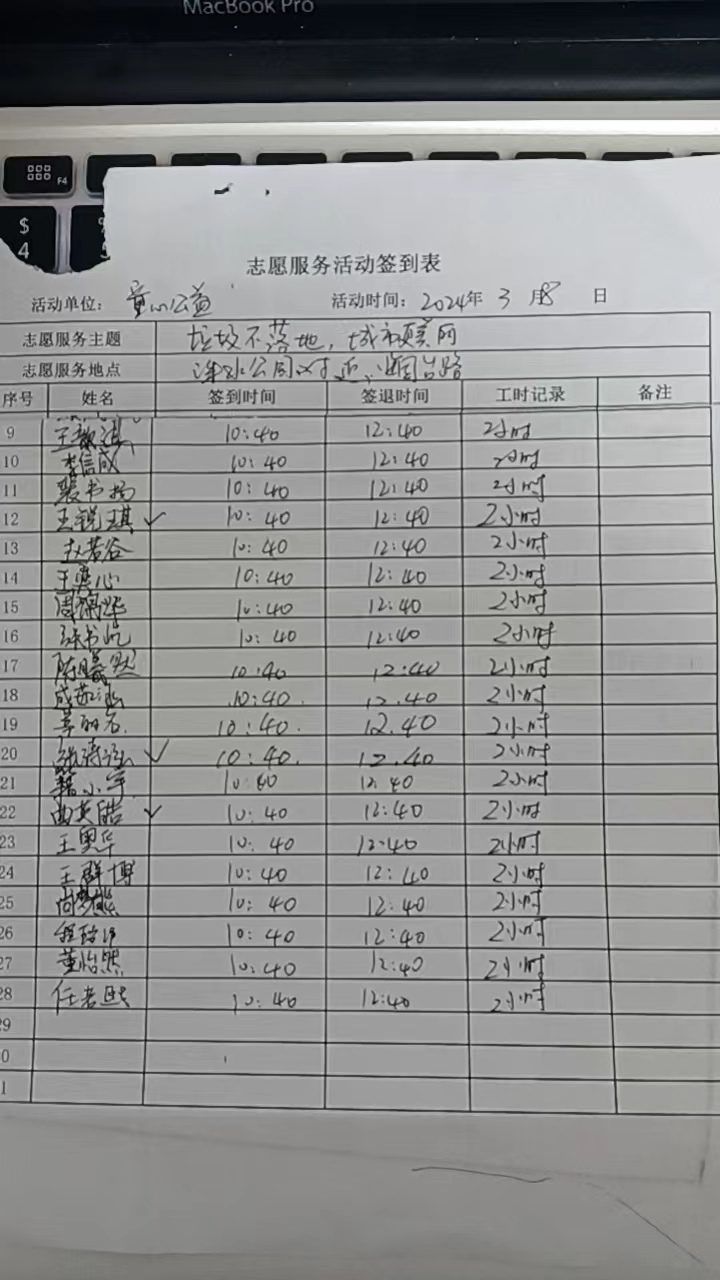 MacBook Pro
F4
$
4
5
志愿服务活动签到表
活动单位： 童心公益 活动时间：2024年 3 月8 日
志愿服务主题 垃圾不落地，城市更美丽
志愿服务地点 净水公司对面 烟台路
序号 姓名 签到时间 签退时间 工时记录 备注
9 王歆淇 10:40 12:40 2小时
10 李信成 10:40 12:40 2小时
11 裴书扬 10:40 12:40 2小时
12 王锐琪 ✓ 10:40 12:40 2小时
13 赵若谷 10:40 12:40 2小时
14 王奕心 10:40 12:40 2小时
15 10:40 12:40 2小时
16 张书屹 10:40 12:40 2小时
17 陈曦默 10:40 12:40 2小时
18 10:40. 12.40 2小时
19 10:40. 12.40 2小时
20 ✓ 10:40. 12.40 2小时
21 小军 10:40 12:40 2小时
22 曲英皓 ✓ 10:40 12:40 2小时
23 王奥华 10:40 12:40 2小时
24 王群博 10:40 12:40 2小时
25 尚梦熊 10:40 12:40 2小时
26 10:40 12:40 2小时
27 董怡然 10:40 12:40 2小时
28 任若熙 10:40 12:40 2小时
29
0
1